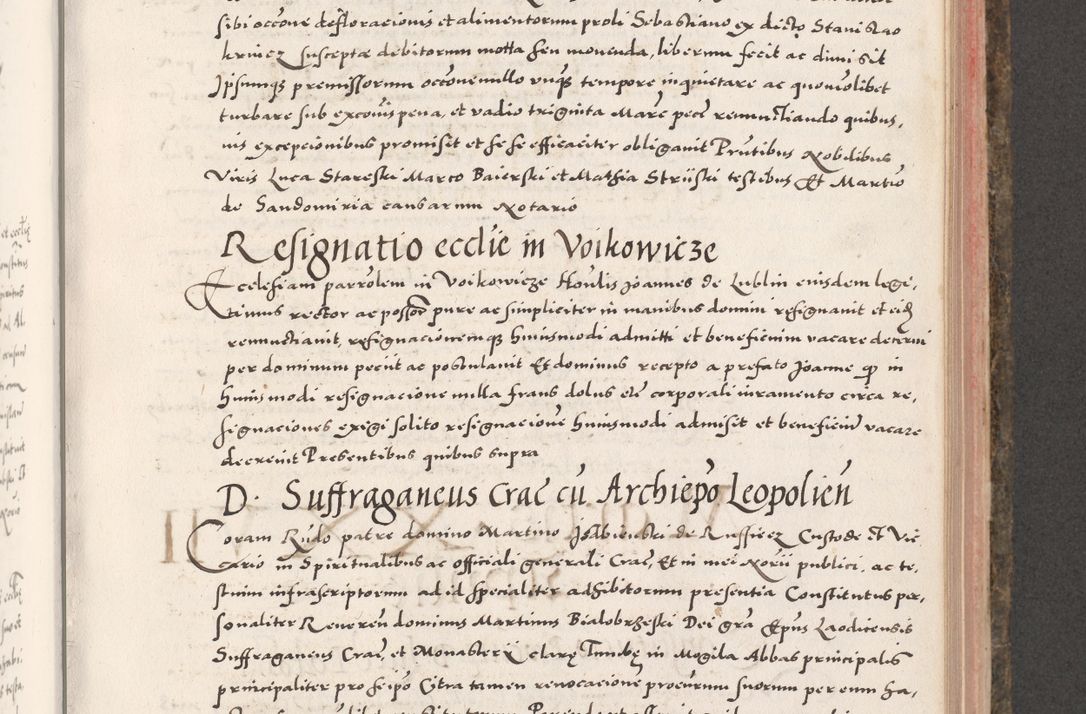 sibi occone defloracionis et alimentorum proli Sebastiano ex dicto Stanislao
kruiez suscepta debitorum motta seu mouenda, liberum fecit ac dimisit
Ipsumqz premissorum occone nullo vnqz tempore inquietare ac quouolibet
turbare sub excois pena, et vadio triginta Marc pec renunctiando quibus,
uis excepcionibus promisit et se se efficaciter obligauit Prutibus Nobilibus
Viris Luca Stareski Marco Baierski et Mathia Strijski testibus Et Martio
de Sandomiria causarum Notario
Resignatio ecclie in Voikowicze
Ecclesiam parrolem in Voikowicze Honlis Joannes de Lublin eiusdem legi,
timus rector ac possor pure ac simpliciter in manibus domini resignauit et eid
renunctiauit, resignacionemqz huiusmodi admitti et beneficium vacare decerni
per dominum peciit ac postulauit Et dominus recepto a prefato Joanne qp in
huiusmodi resignacione nulla fraus dolus etc corporali iuramento circa re,
signaciones exigi solito resignacione huiusmodi admisit et beneficiu vacare
decreuit Presentibus quibus supra
D. Suffraganeus Crac cu Archiepo Leopolien
Coram Rndo patre domino Martino Isdbienski de Russiecz Custode et Vic
cario in Spiritualibus ac officiali generali Crac, Et in mei Norii publici, ac te,
stium infrascriptorum ad id specialiter adhibitorum presentia Constitutus per,
sonaliter Reueren dominus Martinus Bialobrzeski Dei gra Epus Laodicensis
Suffraganeus Crac, et Monasterij clarę Tumbę in Mogila Abbas principalis
principaliter pro seipo Citra tamen reuocacione procurum suorum per eum ha,